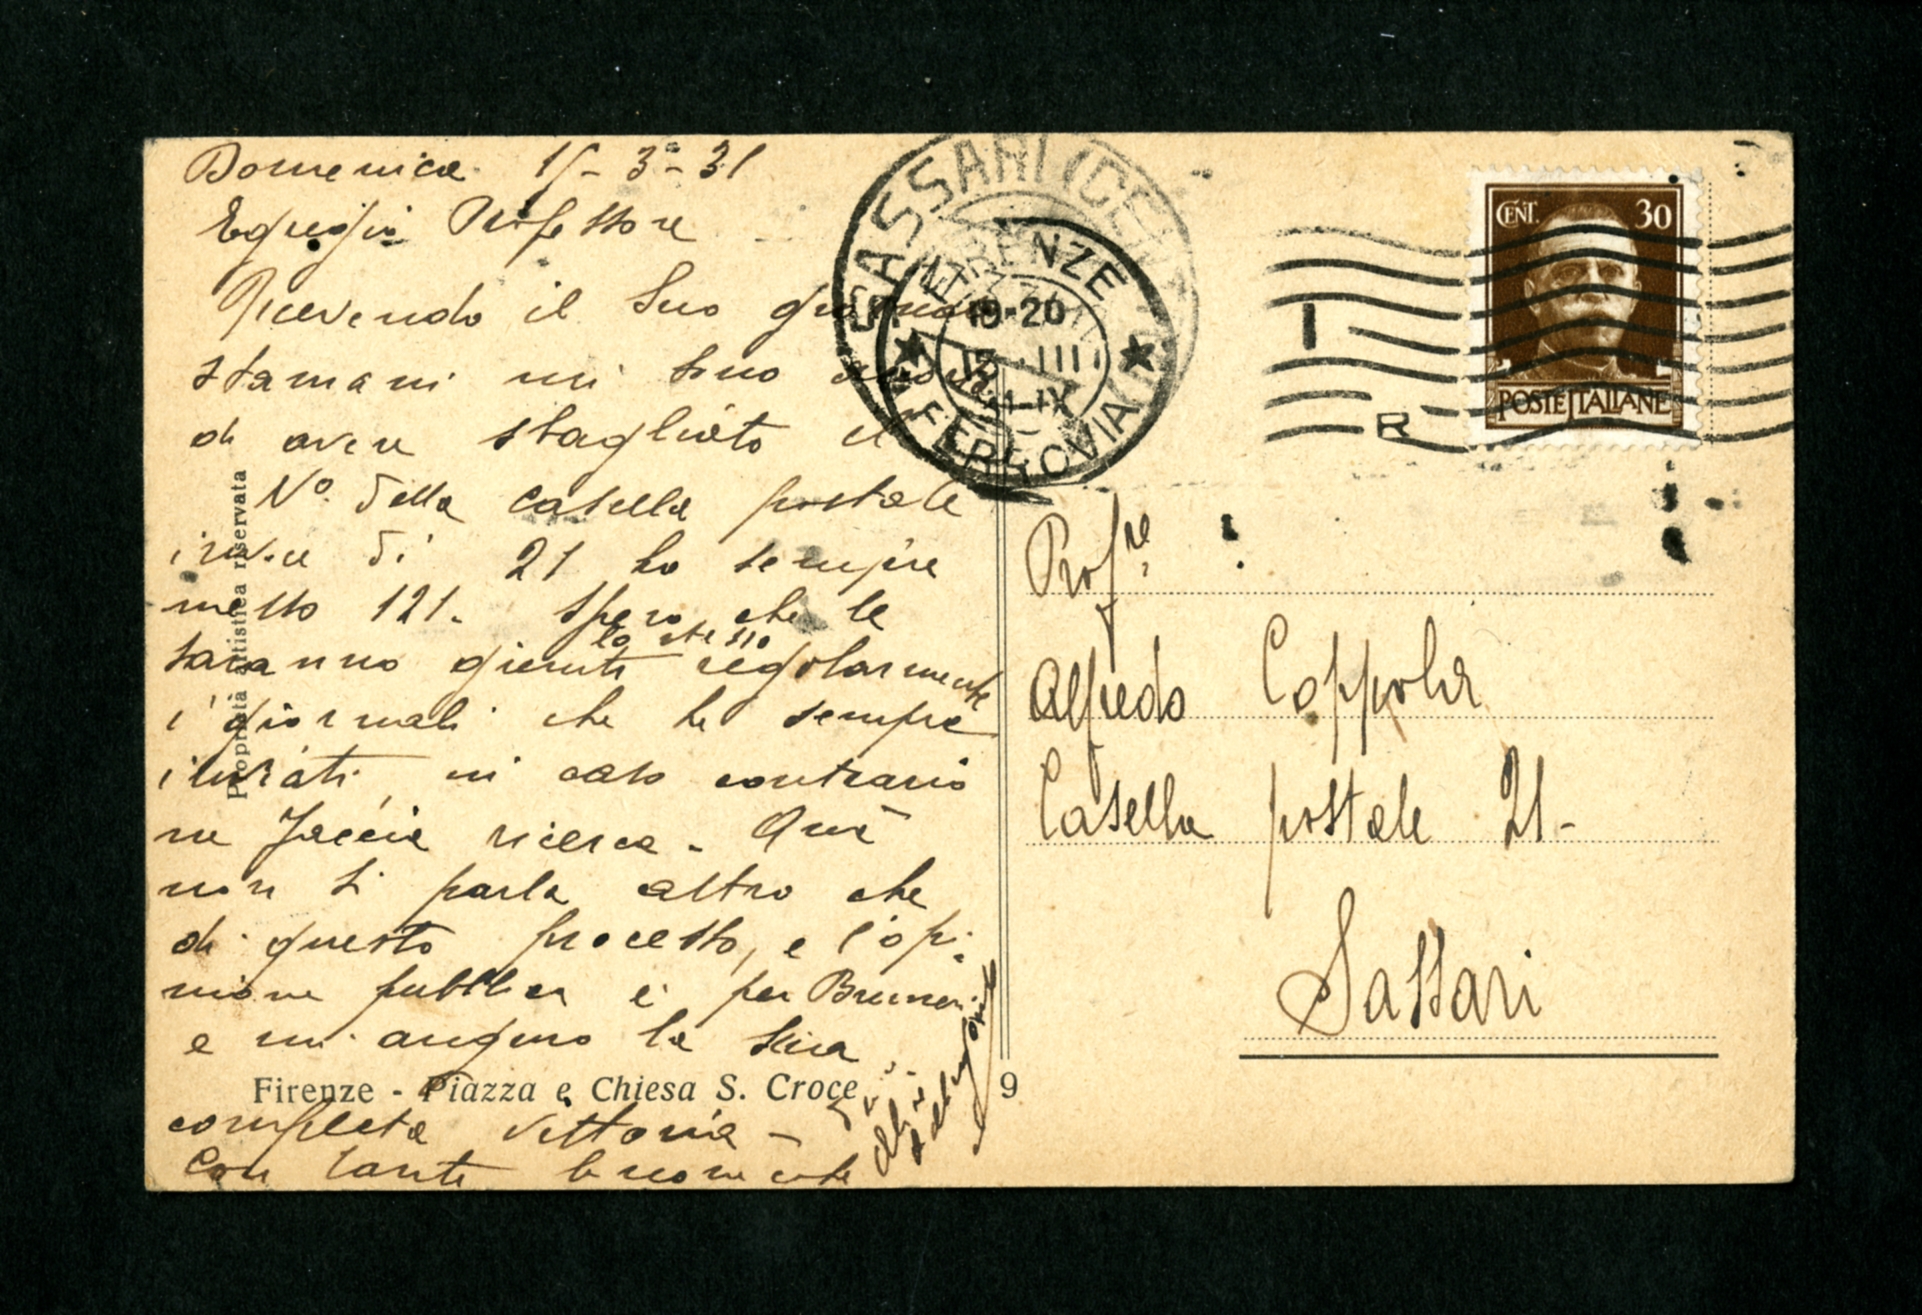 Domenica 15-3°-31
Egregio Professore
Ricevendo il Suo giornale
stamani mi sono
di avere sbagliato il
N° della casella postale
invece di 21 ho sempre
messo 121. Spero che le
lo stesso
saranno giunti regolarmente
i giornali che le sempre
inviati, in caso contrario
ne faccia ricerca. Quà
non si parla altro che
di questo processo, e l'opi-
nione pubblica è per Bruneri
e mi auguro la Sua
completa vittoria -
Con tante buone cose
Firenze - Piazza e Chiesa S. Croce
9
Proprietà artistica riservata
SASSARI
FIRENZE
FERROVIA
19-20
15 III
IX
CENT. 30
POSTE ITALIANE
R
Profre
Alfredo Coppola
Casella postale 21-
Sassari